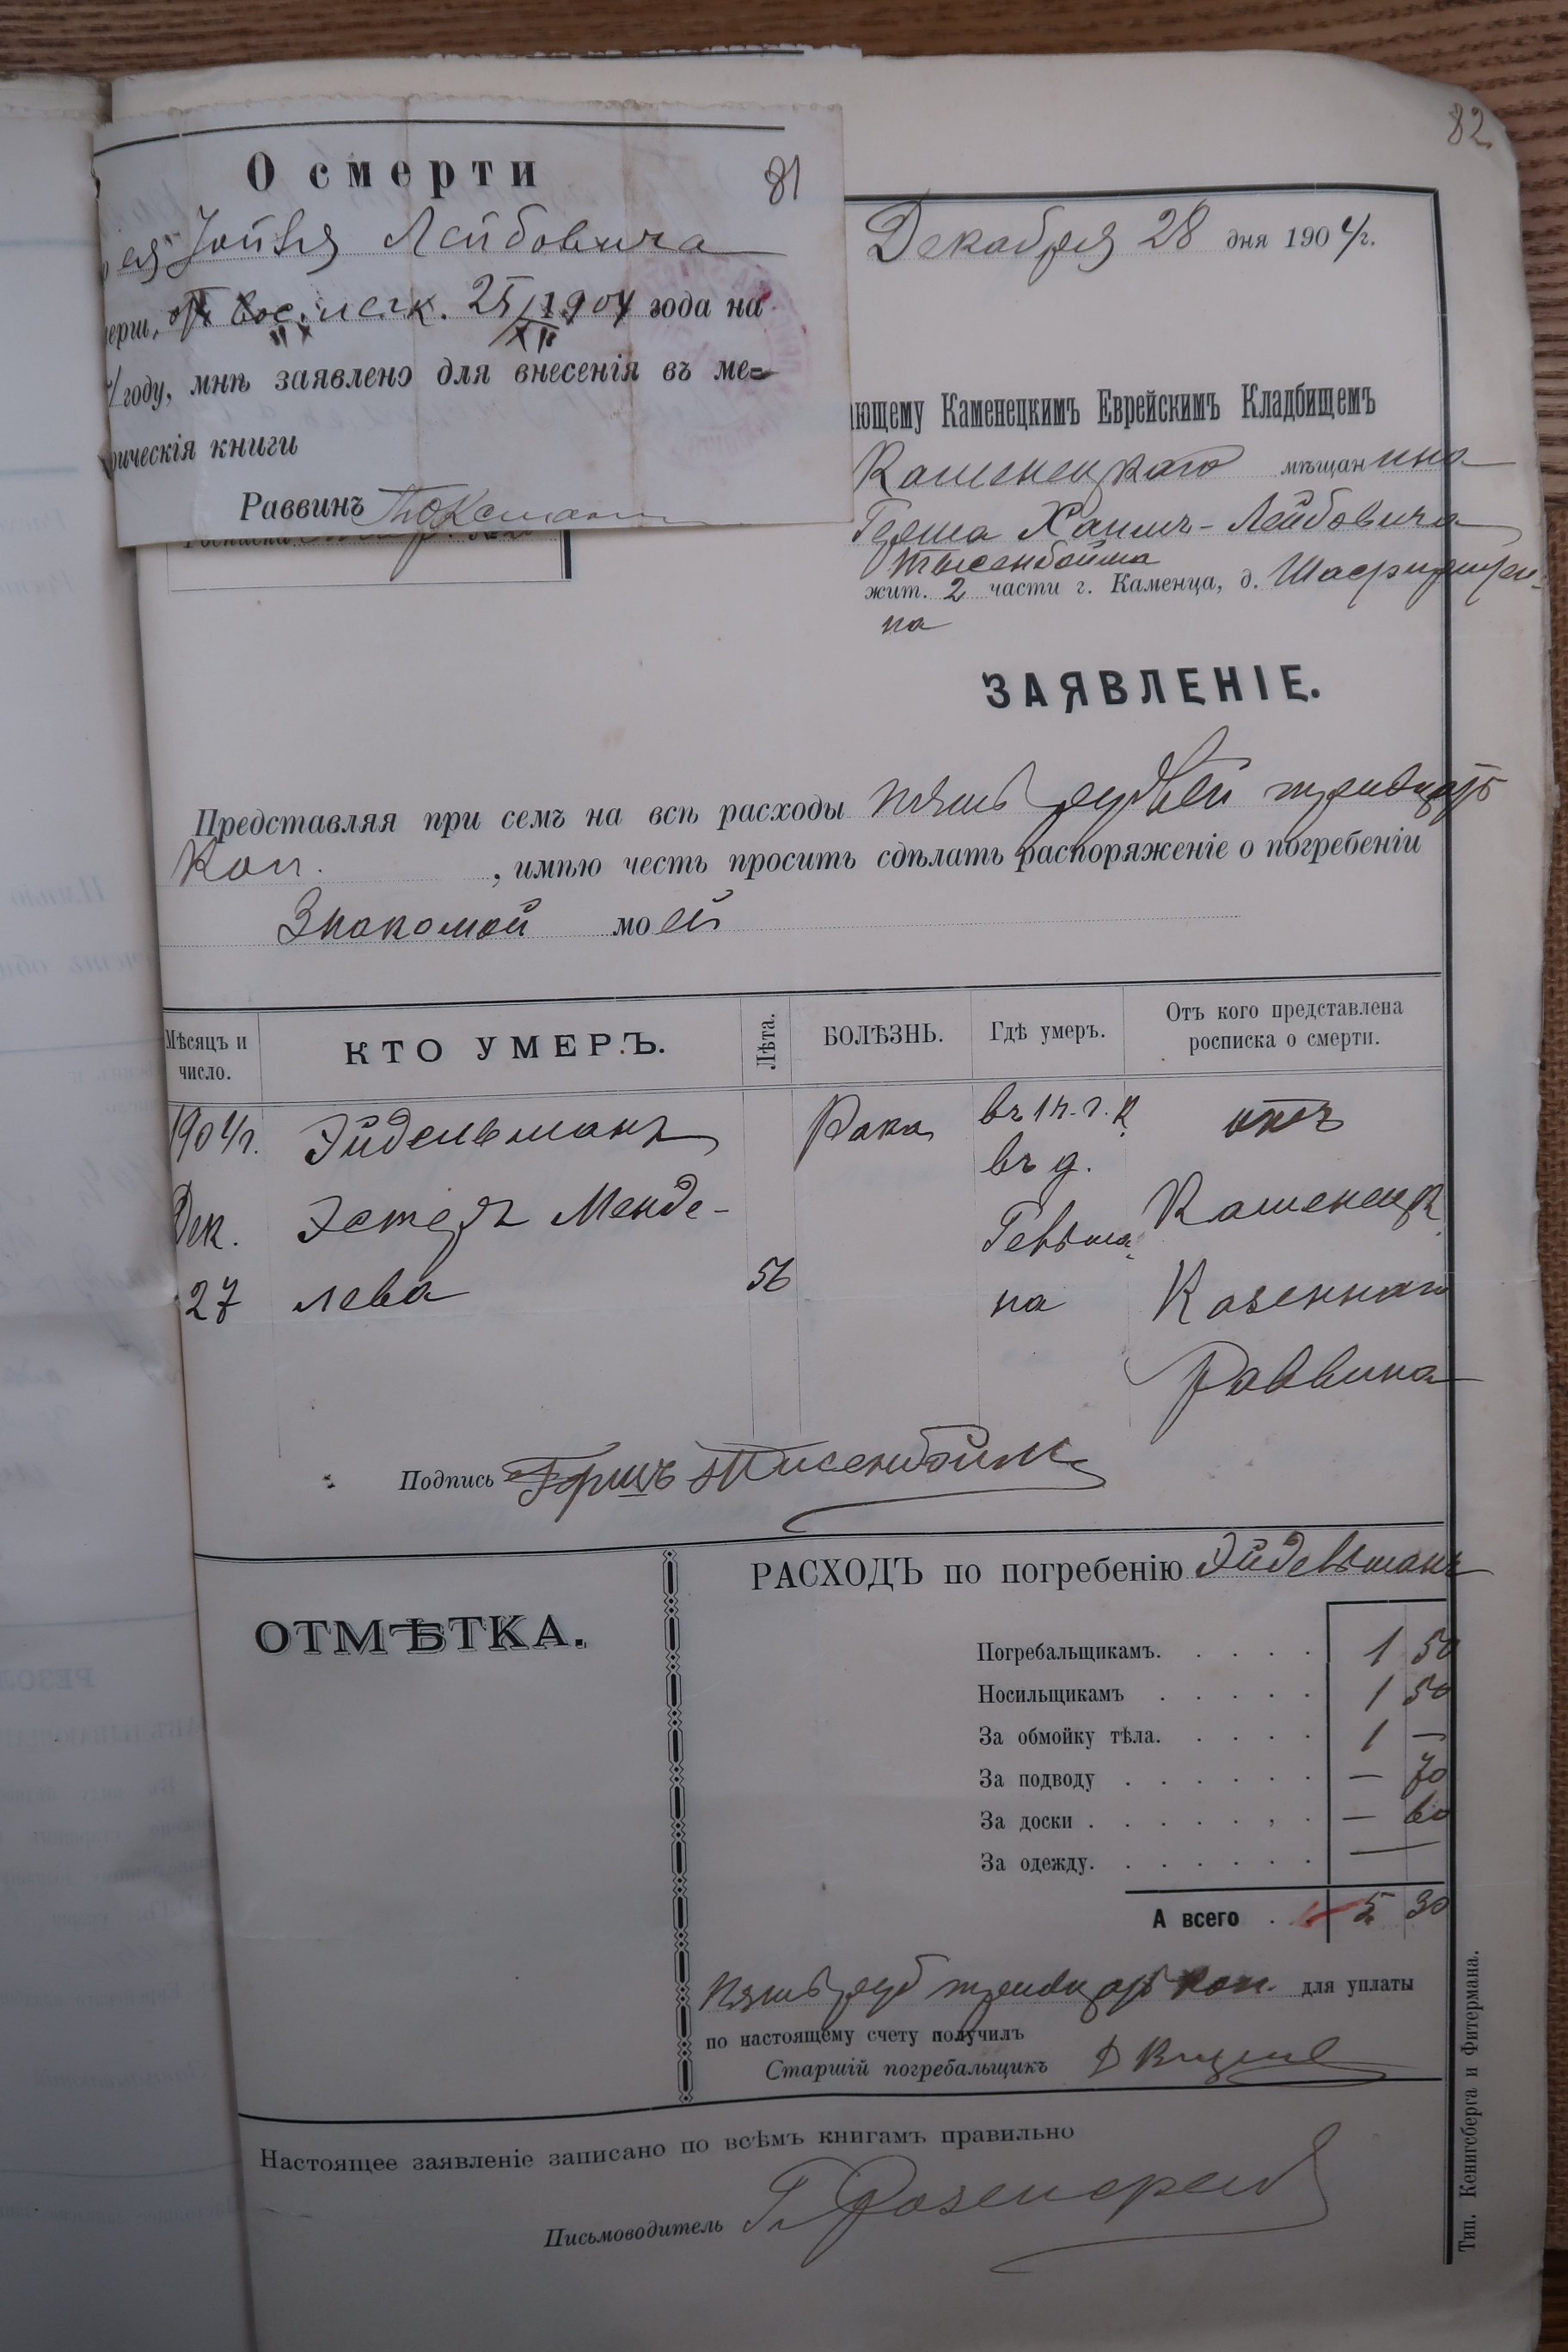 82
О смерти
81
Лейбовича
25/XII 1904 года на
году, мнѣ заявлено для внесенія въ ме-
рическія книги
Раввинъ
Росписка
Декабря 28 дня 1904 г.
ающему Каменецкимъ Еврейскимъ Кладбищемъ
Каменецкаго мѣщанина
Герша Хаимъ-Лейбовича
Тысенбойма
жит. 2 части г. Каменца, д.
на
ЗАЯВЛЕНІЕ.
Представляя при семъ на всѣ расходы пять рублей тридцать
коп. , имѣю честь просить сдѣлать распоряженіе о погребеніи
Знакомой моей
Мѣсяцъ и число. КТО УМЕРЪ. Лѣта. БОЛѢЗНЬ. Гдѣ умеръ. Отъ кого представлена росписка о смерти.
1904 г. Эйдельманъ Рака въ 1 ч. г. К. отъ
въ д.
Дек. Эстеръ Менде- Гельма- Каменецк.
27 лева 56 на Казеннаго
Раввина
Подпись Гершъ Тисенбоймъ
ОТМѢТКА.
РАСХОДЪ по погребенію Эйдельманъ
Погребальщикамъ. 1 50
Носильщикамъ 1 50
За обмойку тѣла. 1 —
За подводу — 70
За доски — 60
За одежду. —
А всего 5 30
Пять руб тридцать коп. для уплаты
по настоящему счету получилъ
Старшій погребальщикъ
Настоящее заявленіе записано по всѣмъ книгамъ правильно
Письмоводитель
Тип. Кенигсберга и Фитермана.